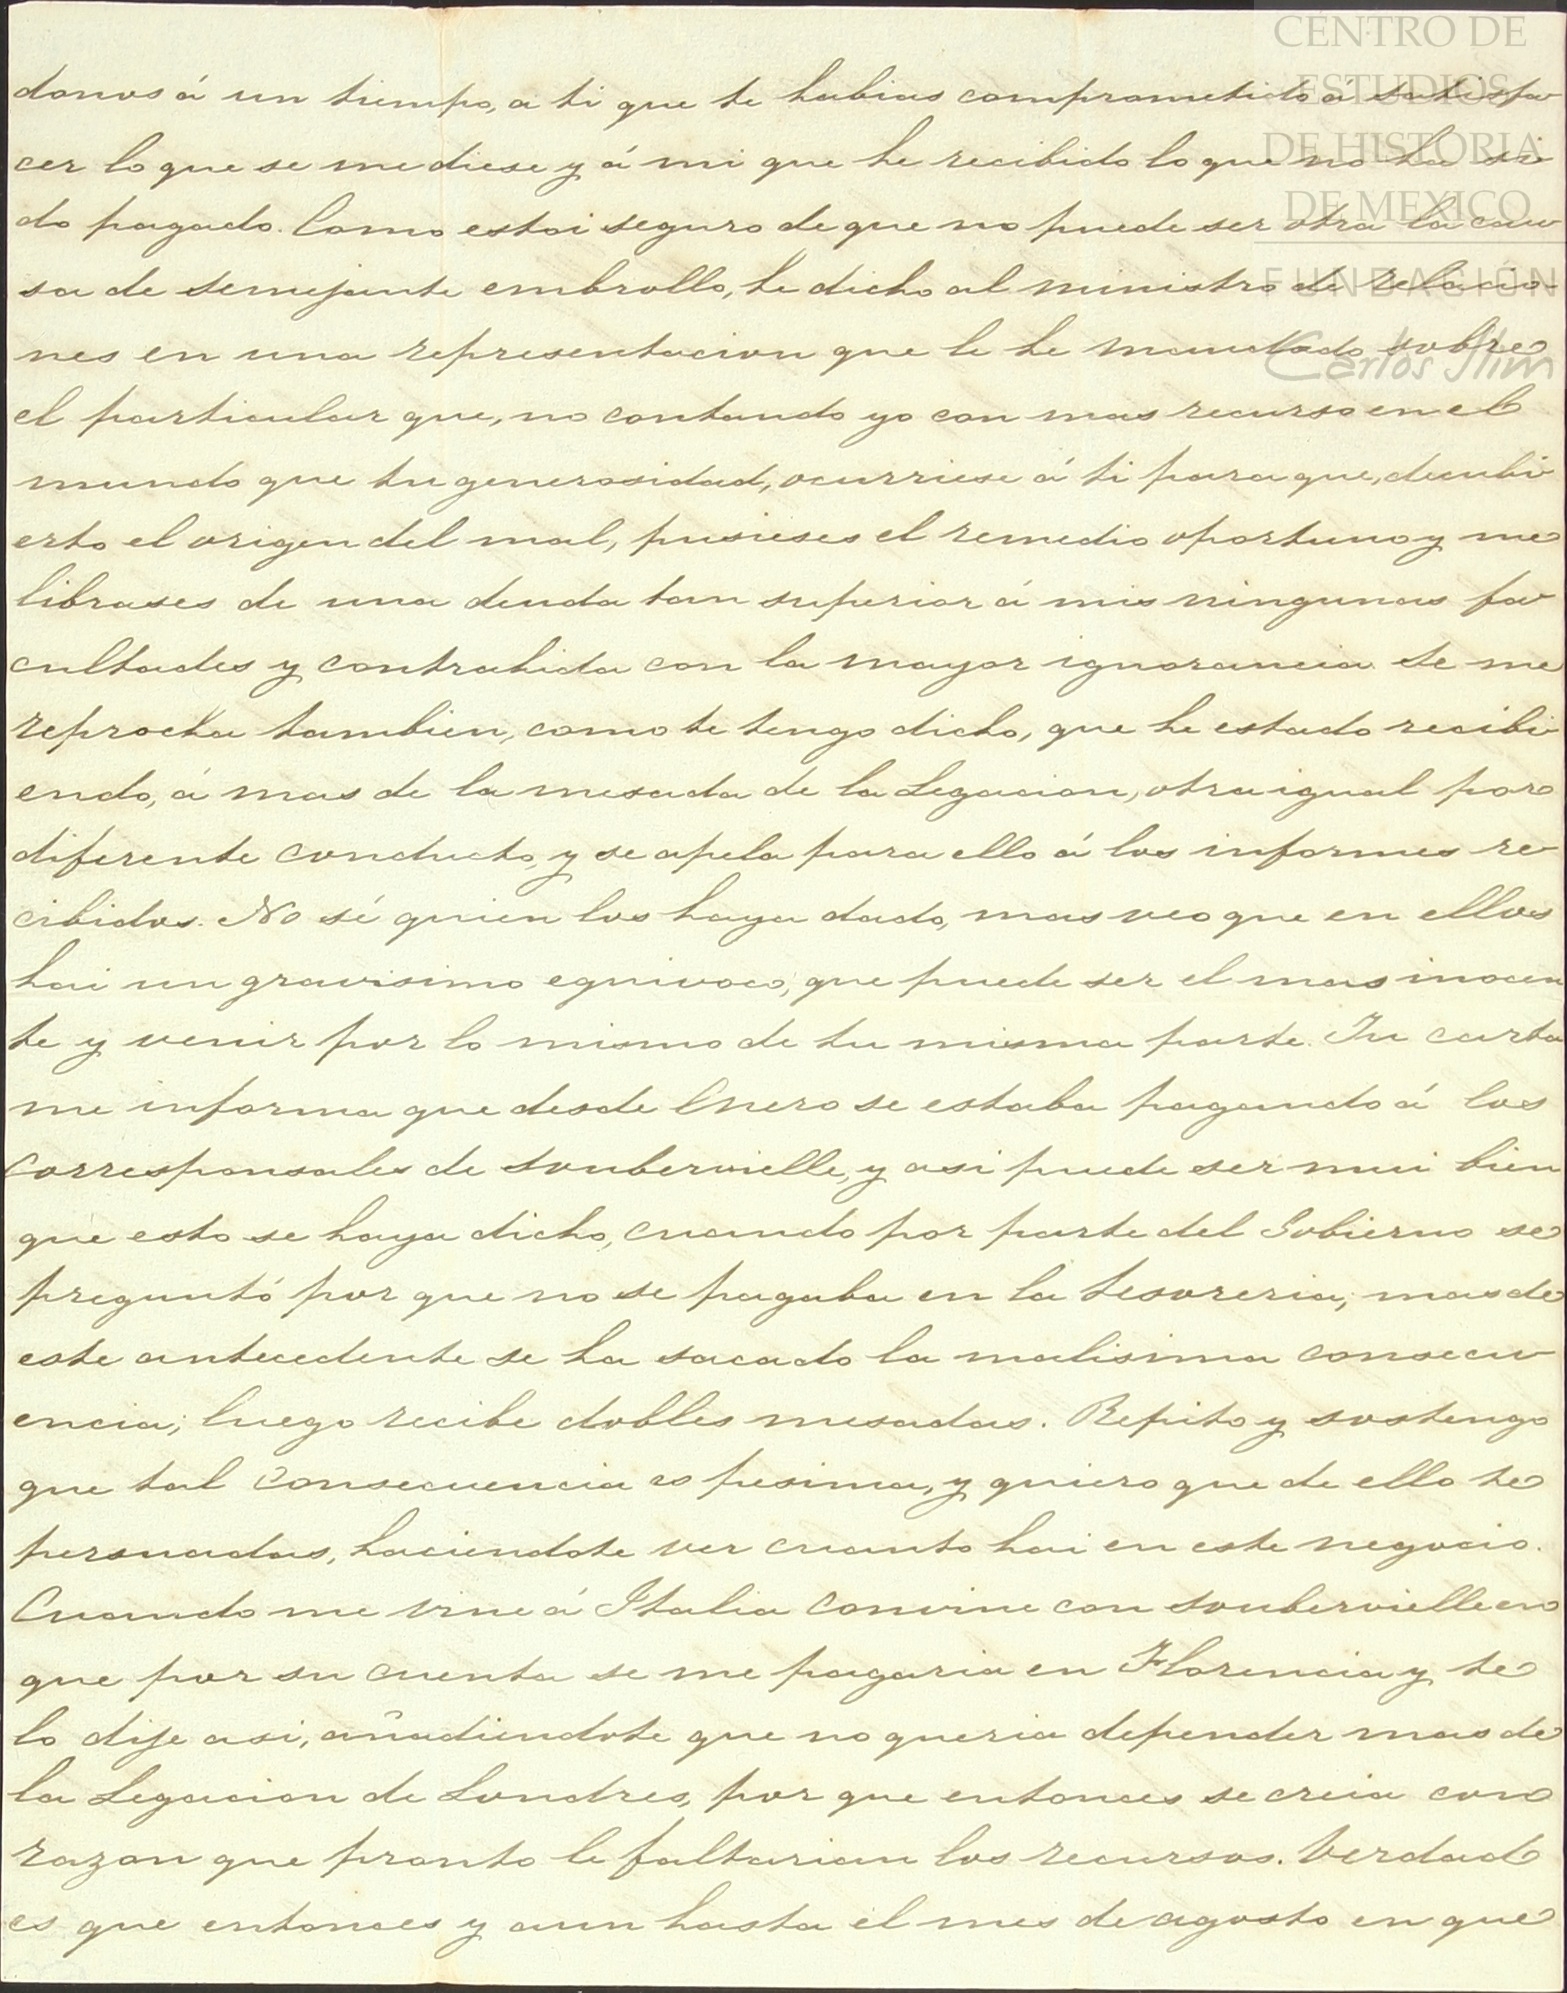 CENTRO DE
ESTUDIOS
DE HISTORIA
DE MEXICO
FUNDACIÓN
Carlos Slim
donos á un tiempo, a ti que te habias comprometido á satisfa
cer lo que se me diese y á mi que he recibido lo que no ha si
do pagado. Como estoi seguro de que no puede ser otra la cau
sa de semejante embrollo, he dicho al ministro de Relacio-
nes en una representacion que le he mandado sobre
el particular que, no contando yo con mas recurso en el
mundo que tu generosidad, ocurriese á ti para que, descubi
erto el origen del mal, pusieses el remedio oportuno y me
librases de una deuda tan superior á mis ningunas fa
cultades y contrahida con la mayor ignorancia. Se me
reprocha tambien, como te tengo dicho, que he estado recibi
endo, á mas de la mesada de la Legacion, otra igual por
diferente conducto, y se apela para ello á los informes re
cibidos. No sé quien los haya dado, mas veo que en ellos
hai un gravisimo equivoco, que puede ser el mas inocen
te y venir por lo mismo de tu misma parte. Tu carta
me informa que desde Enero se estaba pagando á los
corresponsales de Soubervielle, y asi puede ser mui bien
que esto se haya dicho, cuando por parte del Gobierno se
preguntó por que no se pagaba en la tesoreria; mas de
este antecedente se ha sacado la malisima consecu
encia; luego recibe dobles mesadas. Repito y sostengo
que tal consecuencia es pesima, y quiero que de ello te
persuadas, haciendote ver cuanto hai en este negocio.
Cuando me vine á Italia convine con Soubervielle en
que por su cuenta se me pagaria en Florencia y te
lo dije asi, añadiendote que no queria depender mas de
la Legacion de Londres, por que entonces se creia con
razon que pronto le faltarian los recursos. Verdad
es que entonces y aun hasta el mes de agosto en que